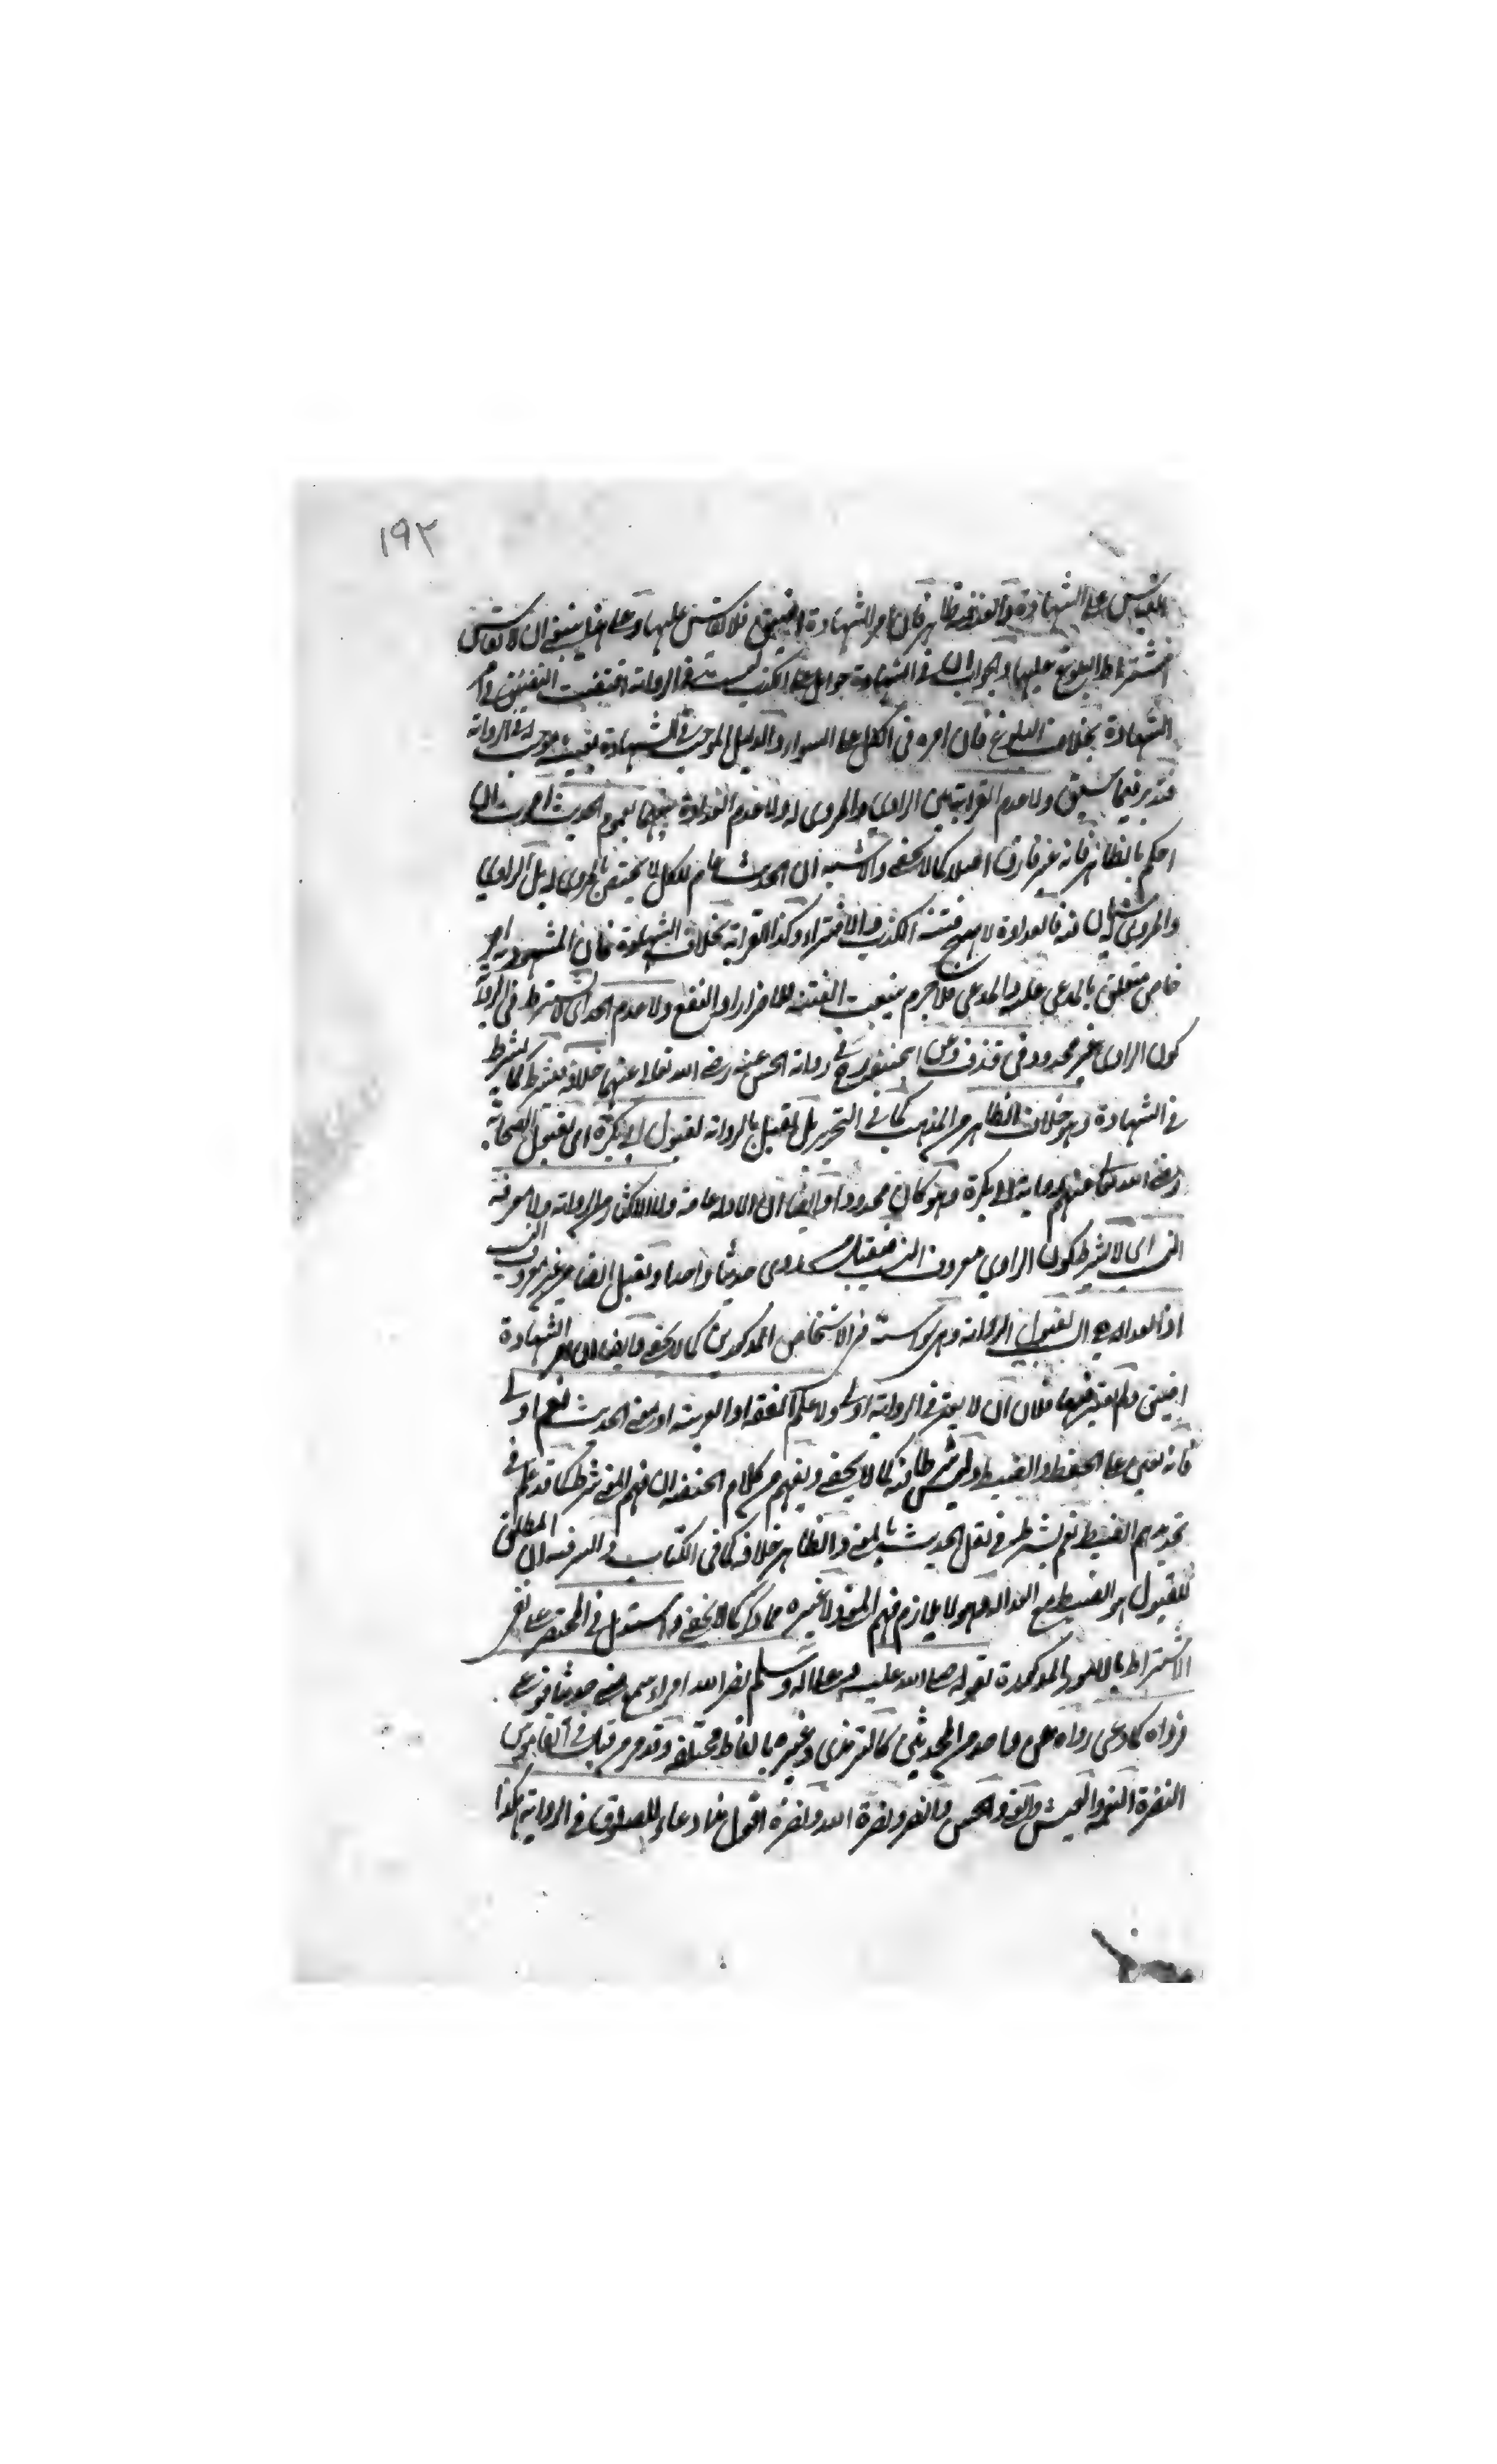 ١٩٢
على الشهادة فان امر الشهادة اضيق فلا تقاس عليها وعلى هذا ينبغي ان لا تقاس
اشتراط البلوغ عليها والجواب ان في الشهادة حوامل على الكذب ليست في الرواية التضييق في امر
الشهادة بخلاف البلوغ فان امره في الكل على السواء والدليل الموجب في الشهادة الرواية
فتدبر ولا عدم القرابة بين الراوي والمروي له ولا عدم العداوة بينهما لعموم الحديث امرت ان
احكم بالظاهر فانه غير فارق اصلا كما لا يخفى والاشبه ان الحديث عام للكل لا يختص بالمروي له بل الراوي
والمروي له فيه فالعداوة لا فتنة الكذب والافتراء وكذا القرابة بخلاف الشهادة فان المشهود به امر
خاص متعلق بالمدعى عليه والمدعي فلا جرم الفتنة للاضرار او النفع ولا عدم الحد اي لا يشترط في الرواية
كون الراوي غير محدود في قذف وعن ابي حنيفة في رواية الحسن عنه رضي الله تعالى عنهما خلافه فيشترط كما يشترط
في الشهادة وهو خلاف الظاهر من المذهب كما في التحرير بل تقبل الرواية لقبول ابي بكرة اي لقبول الصحابة
رضي الله تعالى عنهم رواية ابي بكرة وهو كان محدودا وايضا ان الادلة عامة ولا الاكثار من الرواية ولا معرفة
النسب اي لا يشترط كون الراوي معروف النسب فيقبل من روى حديثا واحدا وتقبل ايضا من غير معروف النسب
اذ العدالة لقبول الرواية وهي في الاشخاص المذكورين كما لا يخفى وايضا ان امر الشهادة
اضيق ولم يعتبر فيها فلان لا يعتبر في الرواية اولى ولا علم الفقه او العربية او معنى الحديث نعم اولى
فانه يعين على الحفظ والضبط وليس شرطا فيه كما لا يخفى ويفهم من كلام الحنفية ان فهم المعنى شرط كما قد علم في
تحديدهم الضبط نعم يشترط في نقل الحديث بالمعنى والظاهر خلافه كما في الكتاب ان المطلق
للقبول هو الضبط مع العدالة وهو لا يلازم فهم المعنى ولا غيره مما ذكر كما لا يخفى واستدل في المختصر على نفي
الاشتراط بالامور المذكورة بقوله صلى الله عليه وعلى اله وسلم نضر الله امرء سمع مني حديثا فوعى
فرواه كما وعى رواه من المحدثين كالترمذي وغيره بالفاظ مختلفة وقد مر من قبل في القاموس
النضرة النعمة والعيش والغنى والحسن ونضره الله ونضره اقول هذا دعاء للصادق في الرواية هكذا